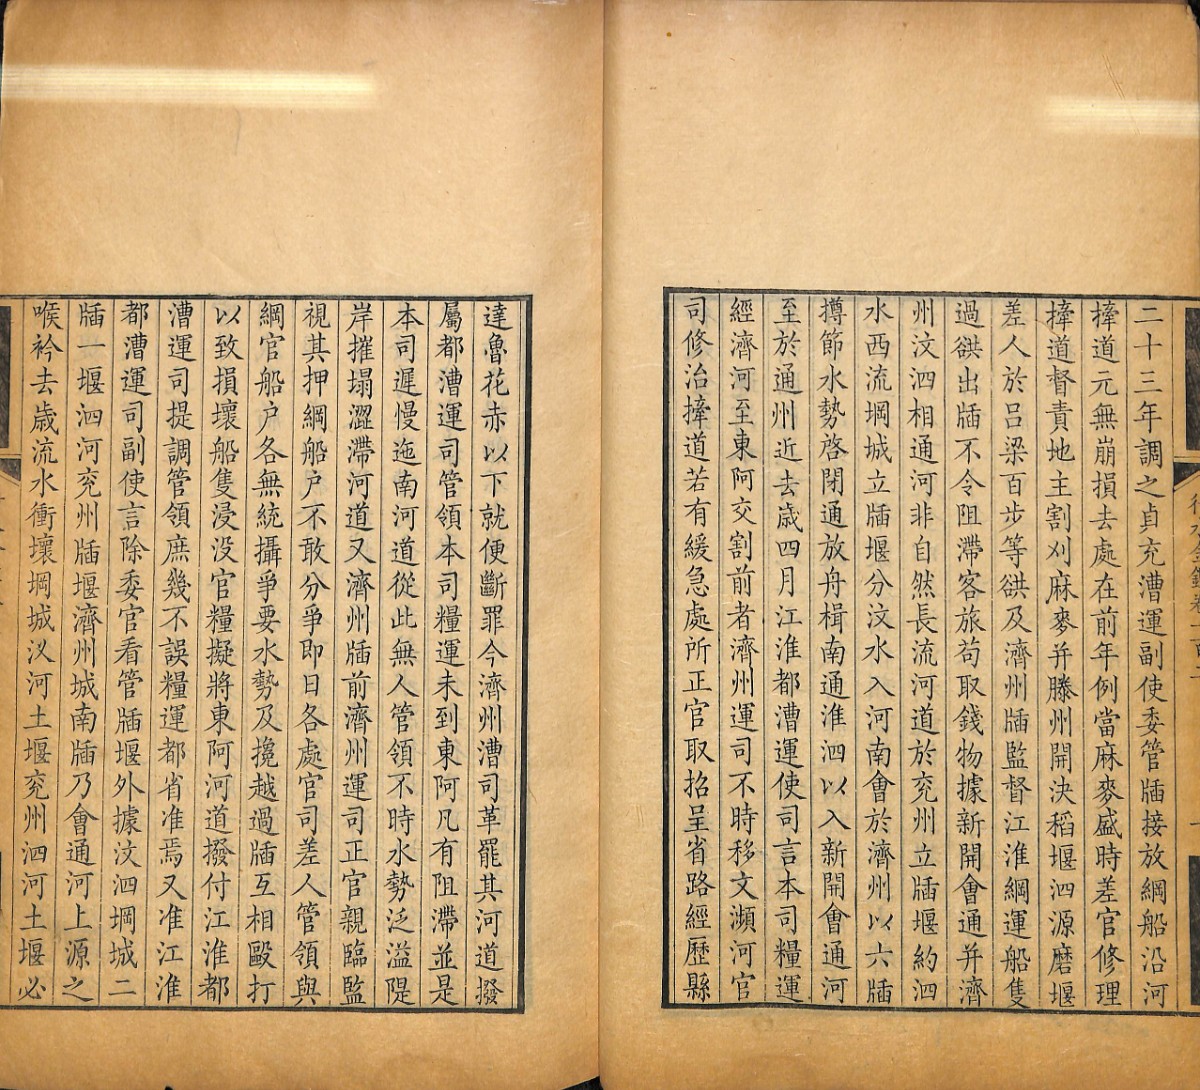 二十三年調之貞充漕運副使委管牐接放綱船沿河
㨃道元無崩損去處在前年例當麻麥盛時差官修理
㨃道督責地主割刈麻麥并滕州開決稻堰泗源磨堰
差人於吕梁百步等谼及濟州牐監督江淮綱運船隻
過谼出牐不令阻滯客旅苟取錢物據新開會通并濟
州汶泗相通河非自然長流河道於兖州立牐堰約泗
水西流堈城立牐堰分汶水入河南會於濟州以六牐
撙節水勢啓閉通放舟楫南通淮泗以入新開會通河
至於通州近去歲四月江淮都漕運使司言本司糧運
經濟河至東阿交割前者濟州運司不時移文瀕河官
司修治㨃道若有緩急處所正官取招呈省路經歷縣
達魯花赤以下就便斷罪今濟州漕司革罷其河道撥
屬都漕運司管領本司糧運未到東阿凡有阻滯並是
本司遲慢迤南河道從此無人管領不時水勢泛溢隄
岸摧塌澀滯河道又濟州牐前濟州運司正官親臨監
視其押綱船户不敢分爭即日各處官司差人管領與
綱官船户各無統攝爭要水勢及攙越過牐互相毆打
以致損壞船隻浸没官糧擬將東阿河道撥付江淮都
漕運司提調管領庶幾不誤糧運都省准焉又准江淮
都漕運司副使言除委官看管牐堰外據汶泗堈城二
牐一堰泗河兖州牐堰濟州城南牐乃會通河上源之
喉衿去歲流水衝壞堈城汶河土堰兖州泗河土堰必